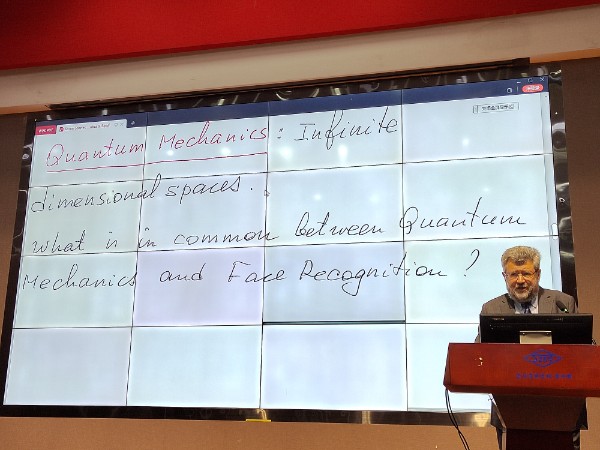 Quantum Mechanics : Infinite
dimensional spaces.
what is in common between Quantum
Mechanics and Face Recognition ?